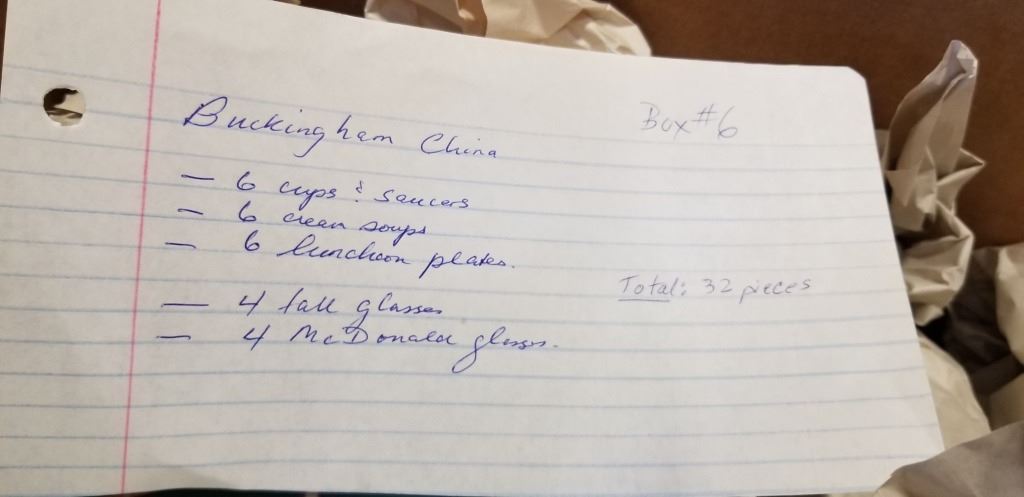 Buckingham China
Box #6
— 6 cups & saucers
— 6 cream soups
— 6 luncheon plates.
Total: 32 pieces
— 4 tall glasses
— 4 McDonald glasses.